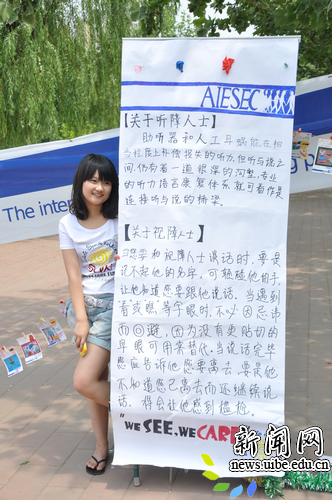 AIESEC
【关于听障人士】
助听器和人工耳蜗能在相
当程度上补偿损失的听力,但听与说之
间,仍有着一道很深的河堑,专业
的听力语言康复体系就可看作是
连接听与说的桥梁。
【关于视障人士】
当您要和视障人士谈话时,要是
说不起他的名字,可轻碰他的手,
让他知道您要跟他说话。当遇到
看或瞧等字眼时,不必因忌讳
而回避,因为没有更贴切的
单眼可用来替代。当说话完毕
您应告诉他您要离去,要是他
不知道您已离去而还继续说
话,将会让他感到尴尬。
"WE SEE. WE CARE
The inter
新闻网
news.uibe.edu.cn